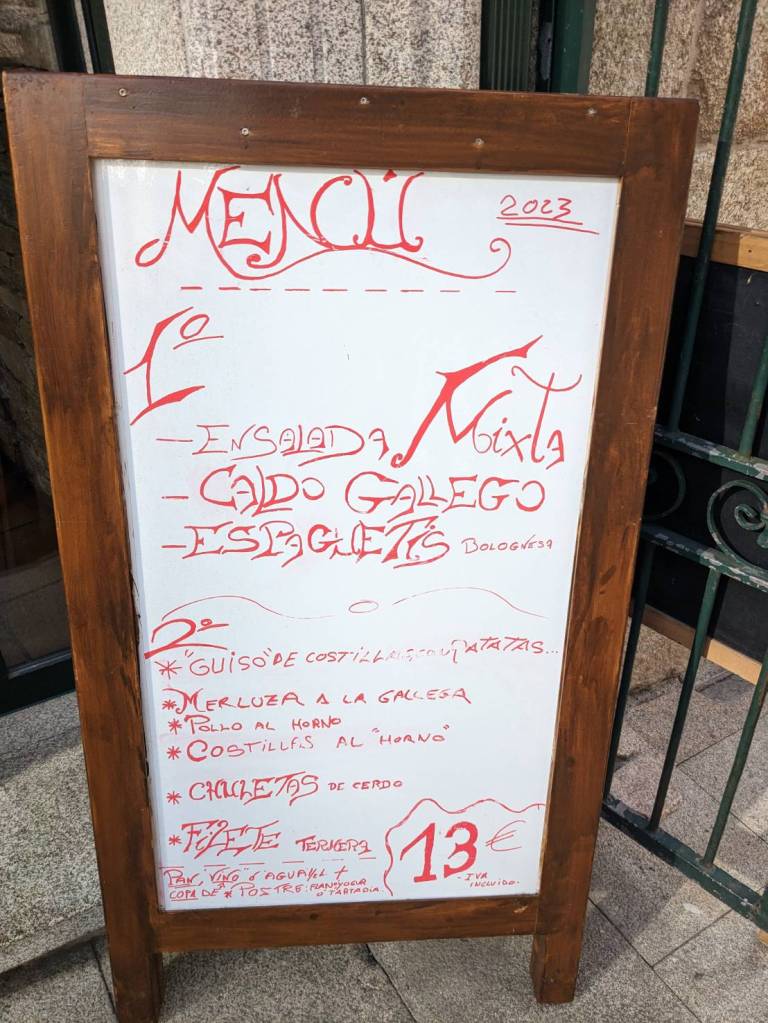 MENÚ
2023
1º
- ENSALADA MIXTA
- CALDO GALLEGO
- ESPAGUETIS BOLOGNESA
2º
* "GUISO" DE COSTILLAS CON PATATAS...
* MERLUZA A LA GALLEGA
* POLLO AL HORNO
* COSTILLAS AL "HORNO"
* CHULETAS DE CERDO
* FILETE TERNERA
13 €
- IVA INCLUIDO.
PAN, VINO Ó AGUA
COPA DE * POSTRE: